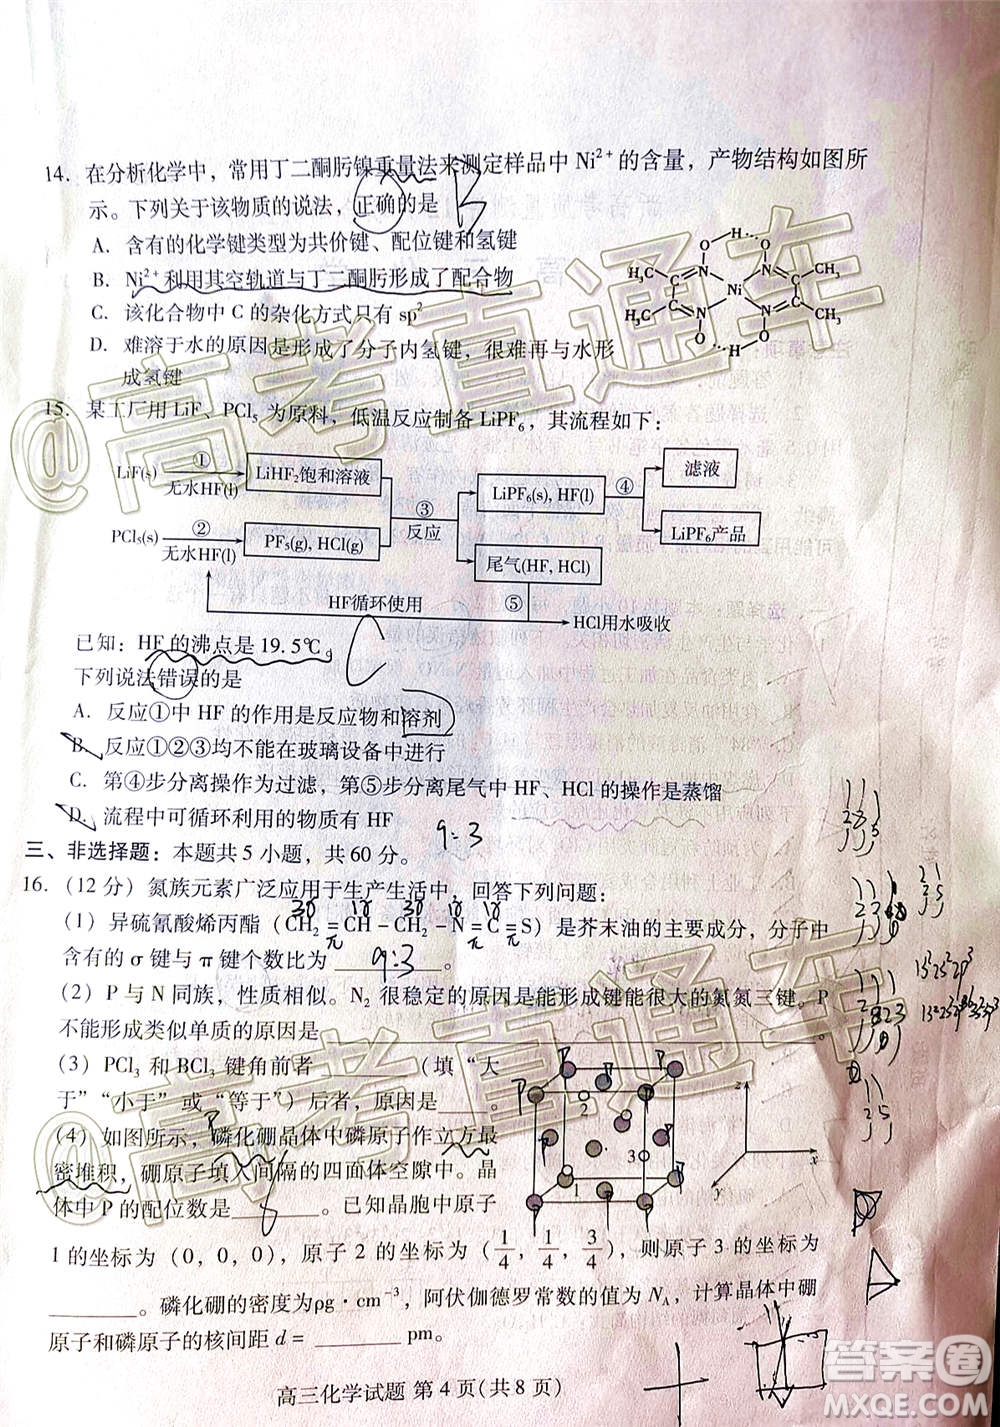 14. 在分析化学中，常用丁二酮肟镍重量法来测定样品中 Ni²⁺ 的含量，产物结构如图所
示。下列关于该物质的说法，正确的是 B
A. 含有的化学键类型为共价键、配位键和氢键
B. Ni²⁺ 利用其空轨道与丁二酮肟形成了配合物
C. 该化合物中 C 的杂化方式只有 sp²
D. 难溶于水的原因是形成了分子内氢键，很难再与水形
成氢键
O—H···O
H₃C C=N N=C CH₃
Ni
H₃C C=N N=C CH₃
O···H—O
15. 某工厂用 LiF、PCl₅ 为原料，低温反应制备 LiPF₆，其流程如下：
LiF(s) ① 无水HF(l) LiHF₂饱和溶液
PCl₅(s) ② 无水HF(l) PF₅(g), HCl(g)
③ 反应
LiPF₆(s), HF(l) ④ 滤液
LiPF₆产品
尾气(HF, HCl)
⑤
HF循环使用
HCl用水吸收
已知：HF 的沸点是 19.5℃。
下列说法错误的是 C
A. 反应①中 HF 的作用是反应物和溶剂
B. 反应①②③均不能在玻璃设备中进行
C. 第④步分离操作为过滤，第⑤步分离尾气中 HF、HCl 的操作是蒸馏
D. 流程中可循环利用的物质有 HF
9:3
三、非选择题：本题共 5 小题，共 60 分。
16.（12 分）氮族元素广泛应用于生产生活中，回答下列问题：
（1）异硫氰酸烯丙酯（CH₂=CH−CH₂−N=C=S）是芥末油的主要成分，分子中
含有的 σ 键与 π 键个数比为 9:3 。
（2）P 与 N 同族，性质相似。N₂ 很稳定的原因是能形成键能很大的氮氮三键。P
不能形成类似单质的原因是
（3）PCl₃ 和 BCl₃ 键角前者 ______（填“大
于”“小于”或“等于”）后者，原因是____。
（4）如图所示，磷化硼晶体中磷原子作立方最
密堆积，硼原子填入间隔的四面体空隙中。晶
体中 P 的配位数是______。已知晶胞中原子
1 的坐标为（0，0，0），原子 2 的坐标为（1/4，1/4，3/4），则原子 3 的坐标为
______。磷化硼的密度为ρg·cm⁻³，阿伏伽德罗常数的值为 N_A，计算晶体中硼
原子和磷原子的核间距 d = ______ pm。
z
y
x
1
2
3
高三化学试题 第 4 页(共 8 页)
@高考直通车
@高考直通车
答案圈
MXQE.COM